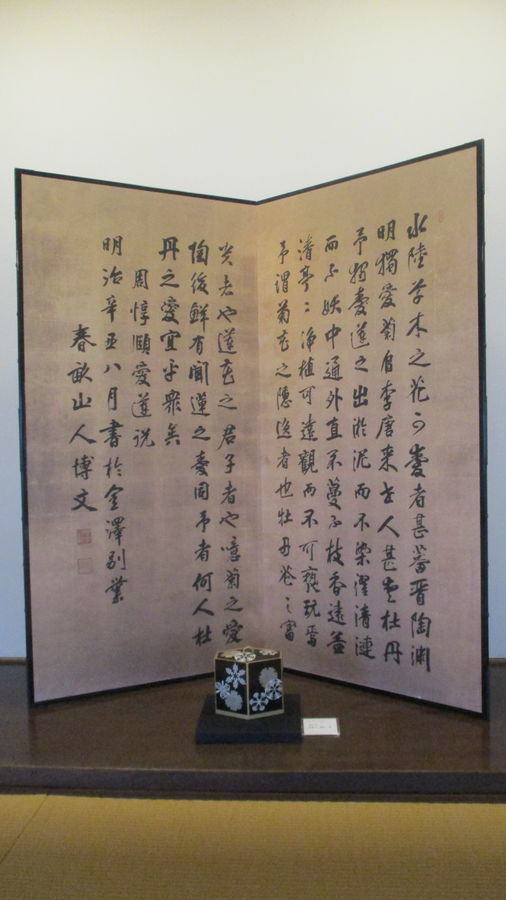 水陸草木之花可愛者甚蕃晋陶淵
明獨愛菊自李唐来世人甚愛牡丹
予獨愛蓮之出淤泥而不染濯清漣
而不妖中通外直不蔓不枝香遠益
清亭々浄植可遠觀而不可褻玩焉
予謂菊花之隠逸者也牡丹花之富
貴者也蓮花之君子者也噫菊之愛
陶後鮮有聞蓮之愛同予者何人牡
丹之愛宜乎衆矣
周惇頤愛蓮説
明治辛丑八月書於金澤別業
春畝山人博文